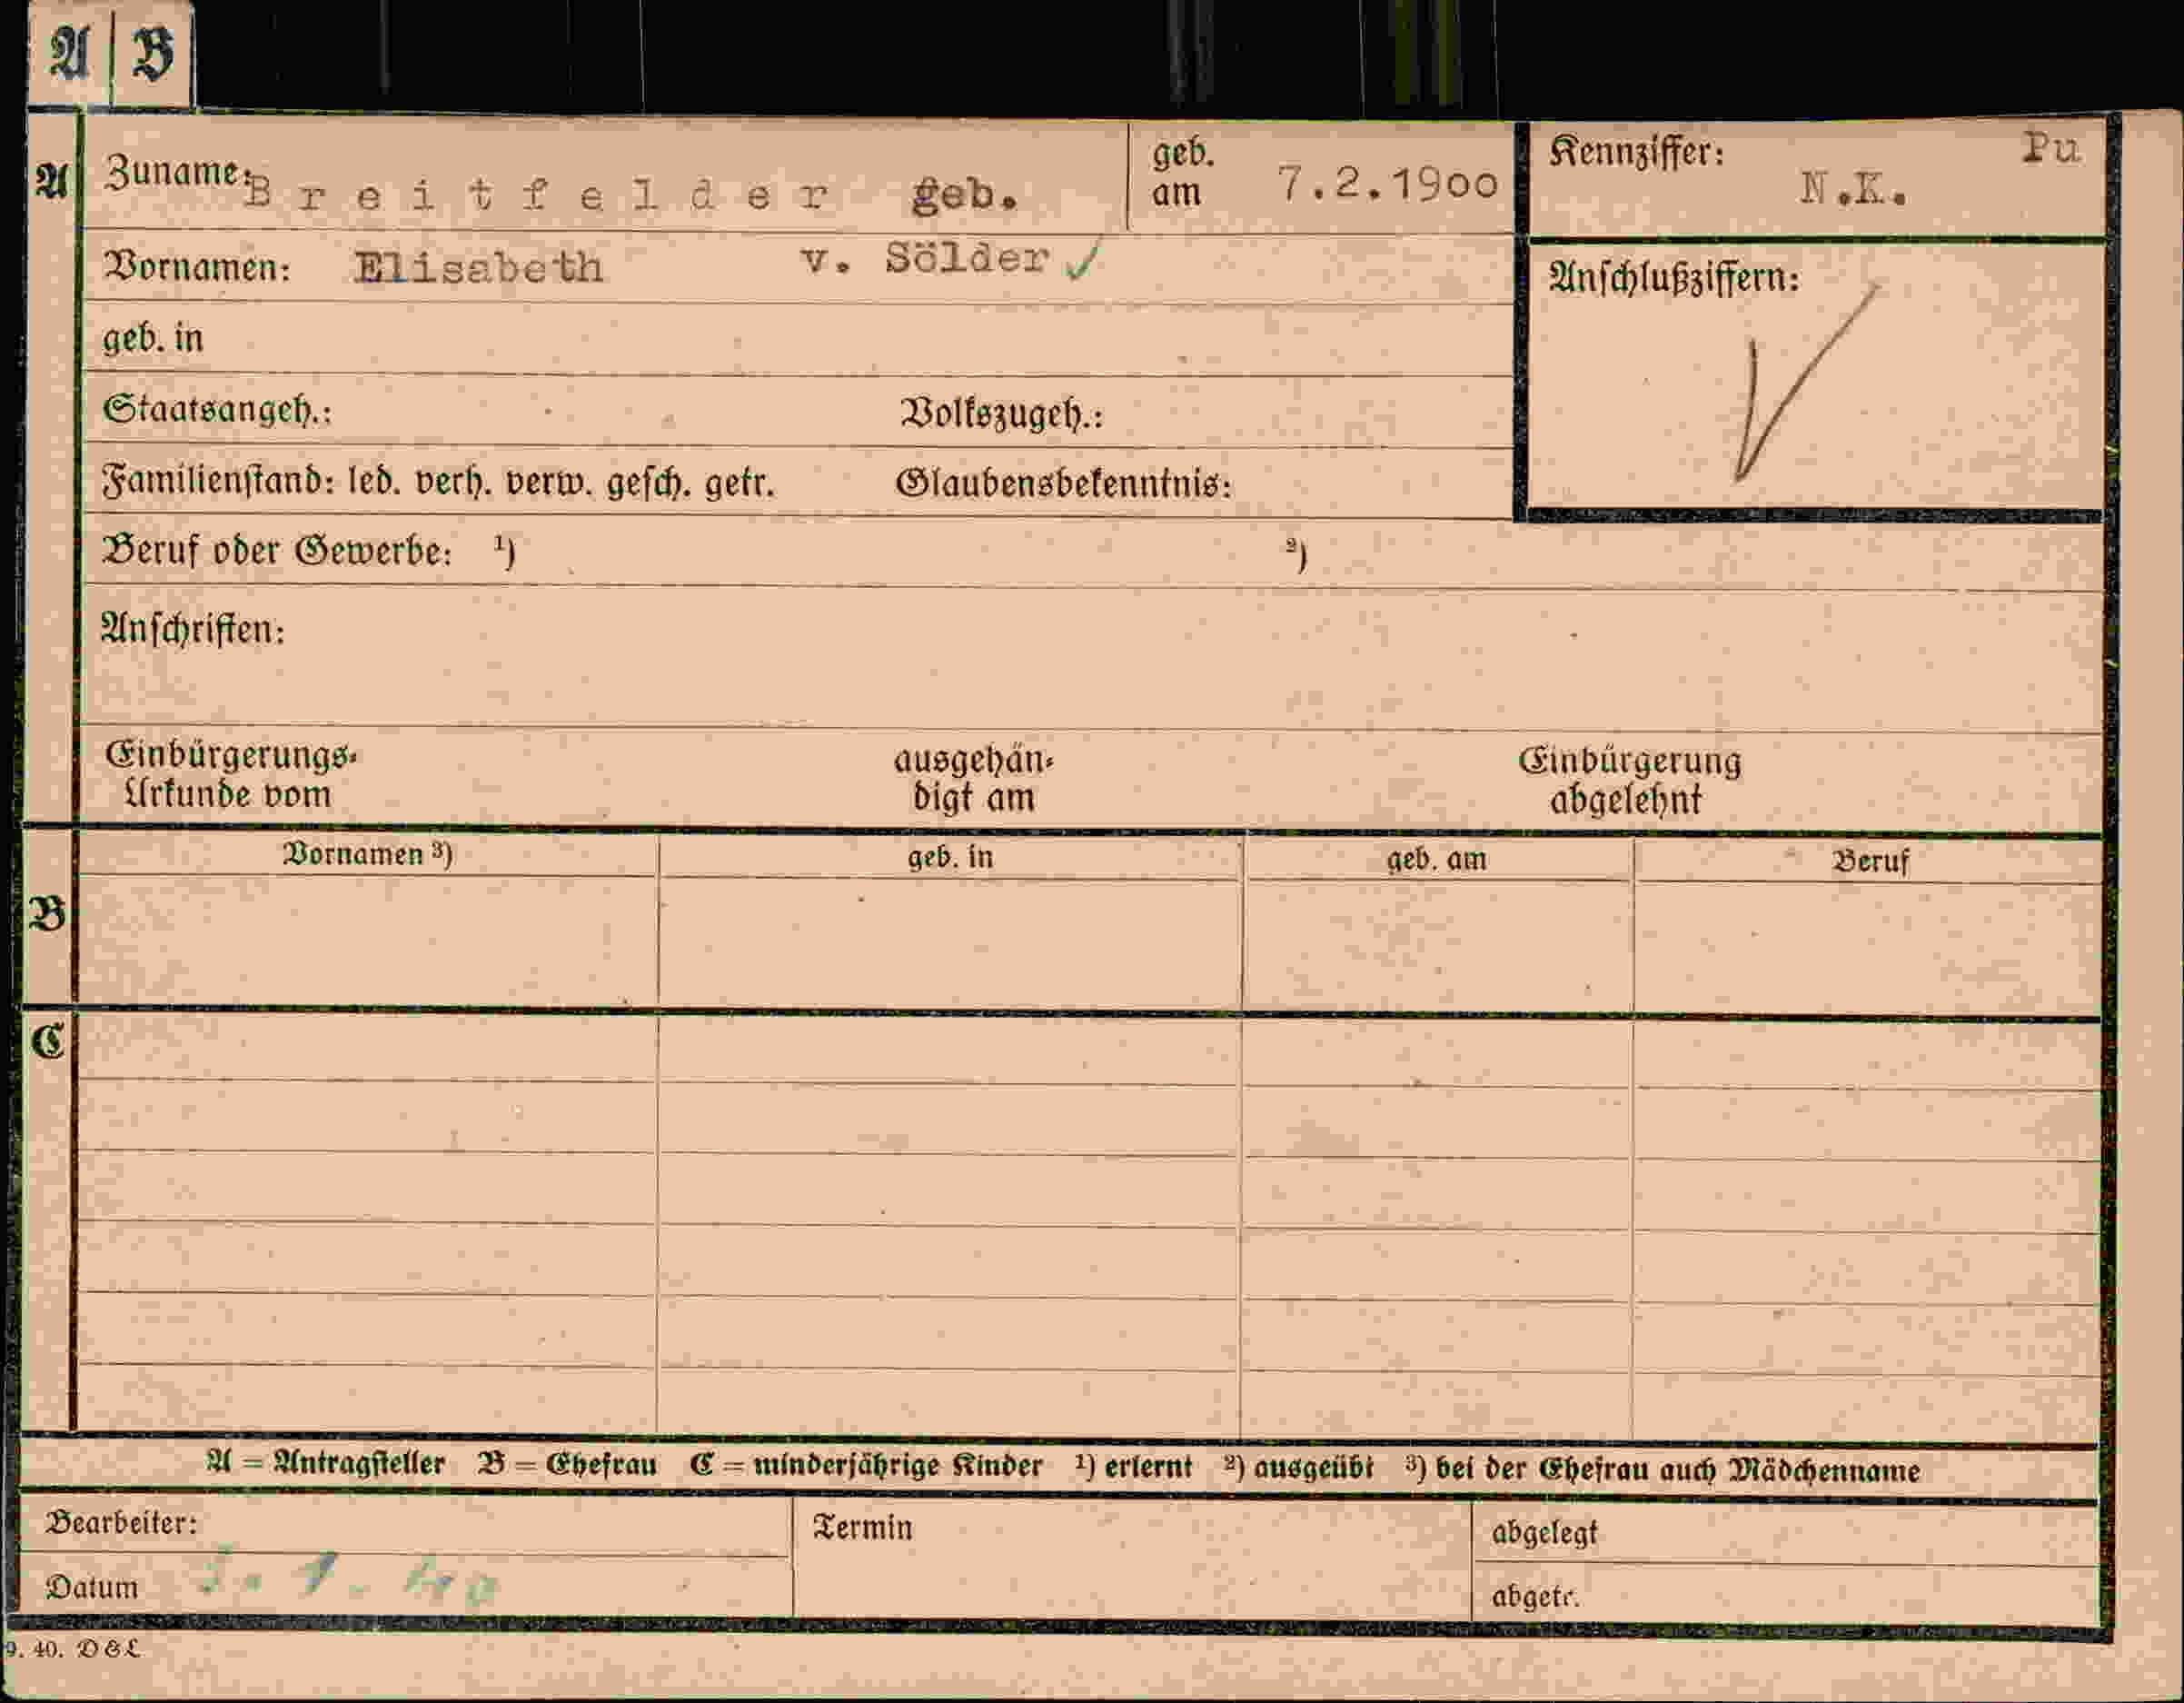 A | B
A Zuname: Breitfelder geb. geb. am 7.2.1900 Kennziffer: Pu N.K.
Vornamen: Elisabeth v. Sölder ✓
Anschlußziffern:
geb. in
Staatsangeh.: Volkszugeh.:
Familienstand: led. verh. verw. gesch. getr. Glaubensbekenntnis:
Beruf oder Gewerbe: ¹) ²)
Anschriften:
Einbürgerungs- ausgehän- Einbürgerung
Urkunde vom digt am abgelehnt
Vornamen ³) geb. in geb. am Beruf
B
C
A = Antragsteller B = Ehefrau C = minderjährige Kinder ¹) erlernt ²) ausgeübt ³) bei der Ehefrau auch Mädchenname
Bearbeiter: Termin abgelegt
Datum abgetr.
9. 40. DGL